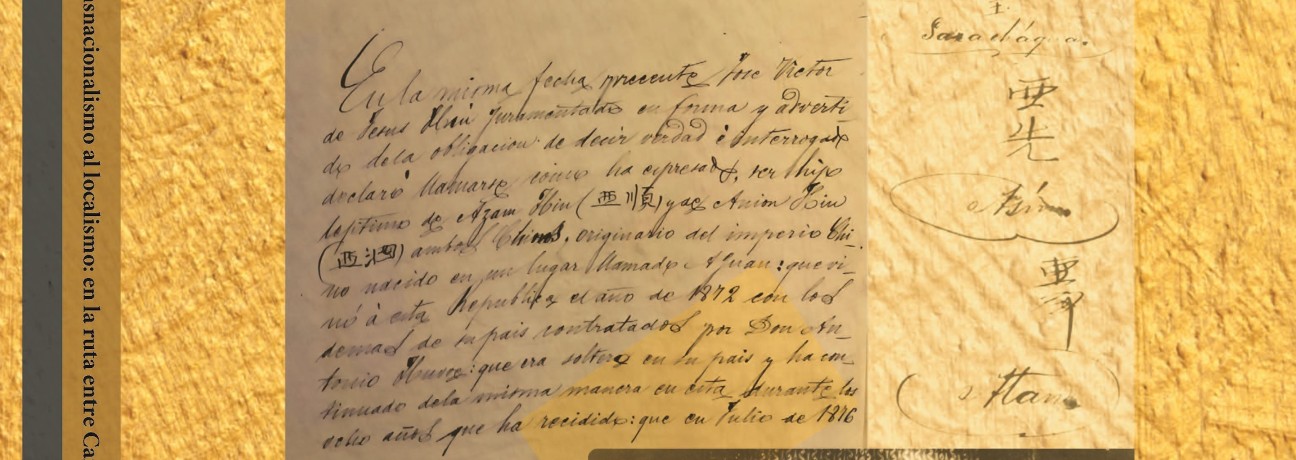 asnacionalismo al localismo: en la ruta entre Ca
En la misma fecha precente Jose Victor
de Jesus Hiu juramentado en forma y adverti-
do dela obligacion de decir verdad é interrogado
declaró llamarse como ha expresado, ser hijo
lejitimo de Azam Hiu (亜順) y de Anion Hiu
(亜洞) ambos Chinos, originario del imperio Chi-
no nacido en un lugar llamado Ajuan: que vi-
nó á esta Republica el año de 1872 con los
demas de su pais contratados por Don An-
tonio Hueze: que era soltero en su pais y ha con-
tinuado dela misma manera en esta durante los
ocho años que ha recidido: que en Julio de 1876
亜
先
Asin
亜
Atan